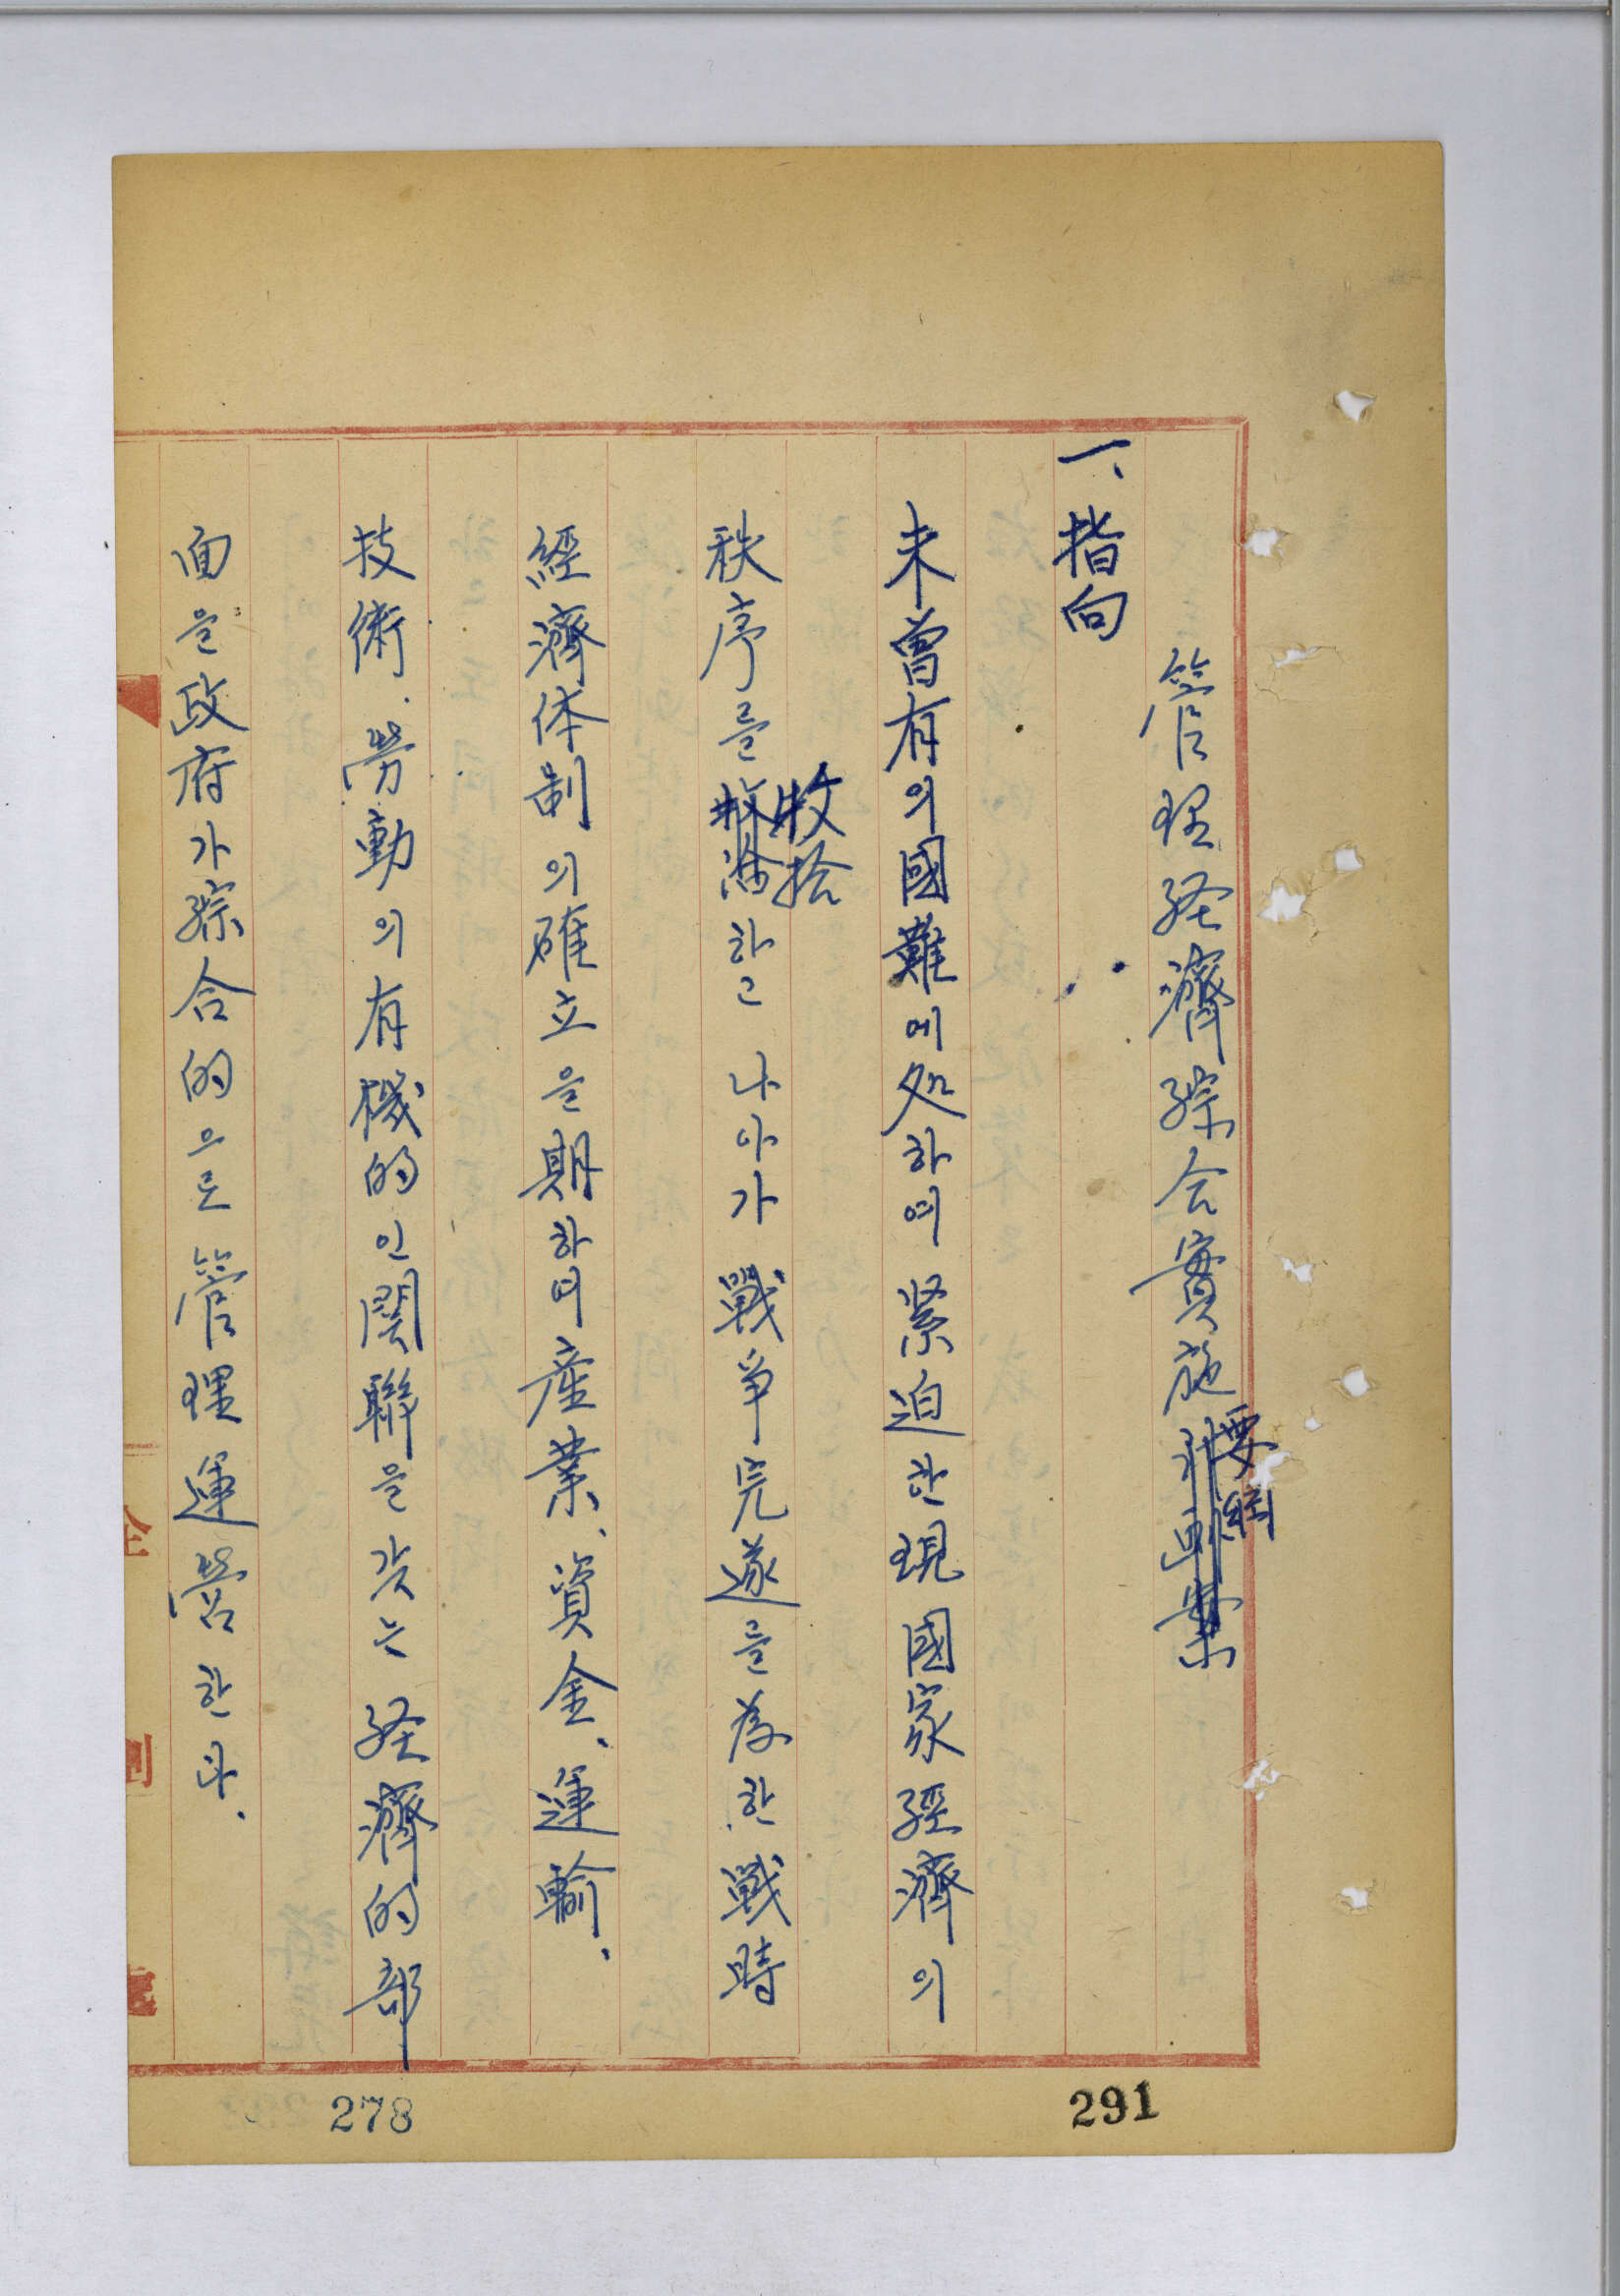 管理経濟綜合實施計画案
要綱
一、指向
未曾有의國難에処하여 緊迫한現國家經濟의
收拾
秩序를收拾하고 나아가 戰爭完遂를為한戰時
經濟体制의確立을期하며産業、資金、運輸、
技術、勞動의有機的인関聯을갖는 経濟的部
面을政府가綜合的으로管理運營한다.
278
291